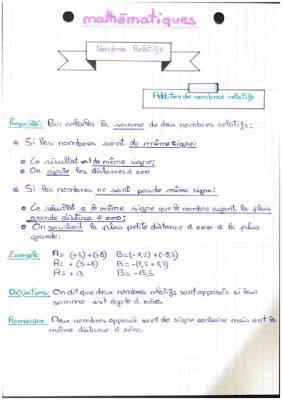 mathématiques
Nombres Relatifs
Addition de nombres relatifs
Propriété: Pour calculer la somme de deux nombres relatifs:
Si les nombres sont de même signe:
Le résultat est de même signe;
On ajoute les distances à zéro
Si les nombres ne sont pas de même signe:
Le résultat a le même signe que le nombre ayant la plus
grande distance à zéro;
On soustrait la plus petite distance à zéro à la plus
grande.
Exemple: A= (+5)+(+8) B=(-7,2)+(-8,3)
A= + (5+8) B= -(7,2+8,3)
A= +13 B= -15,5
Définitions: On dit que deux nombres relatifs sont opposés si leur
somme est égale à zéro.
Remarque: Deux nombres opposés sont de signe contraire mais ont la
même distance à zéro.